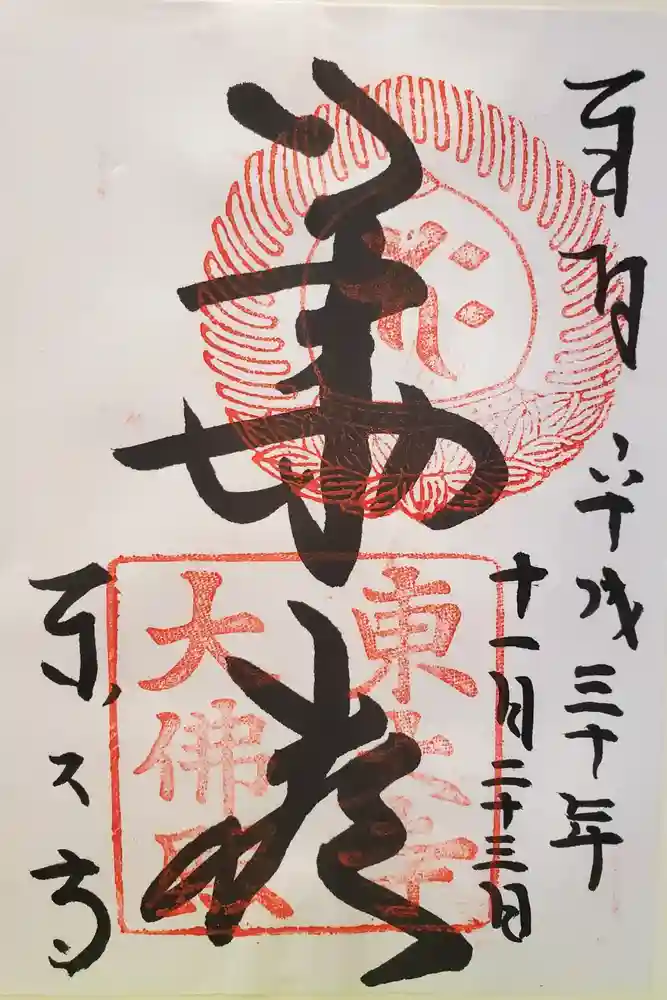 奉拝
平成三十年
十一月二十三日
華厳
東大寺
大佛殿
東大寺